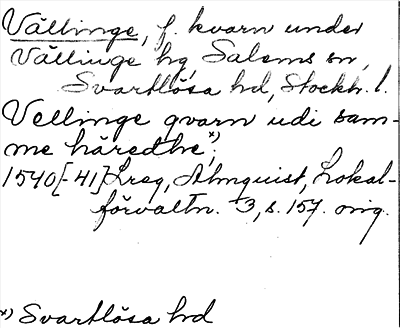 Vällinge, f. kvarn under
Vällinge hg, Salems sn,
Svartlösa hd, Stockh. l.
Vellinge qvarn udi sam-
me häredhe x);
1540[-41] Lreg, Almquist, Lokal-
förvaltn. 3, s. 157. orig.
x) Svartlösa hd